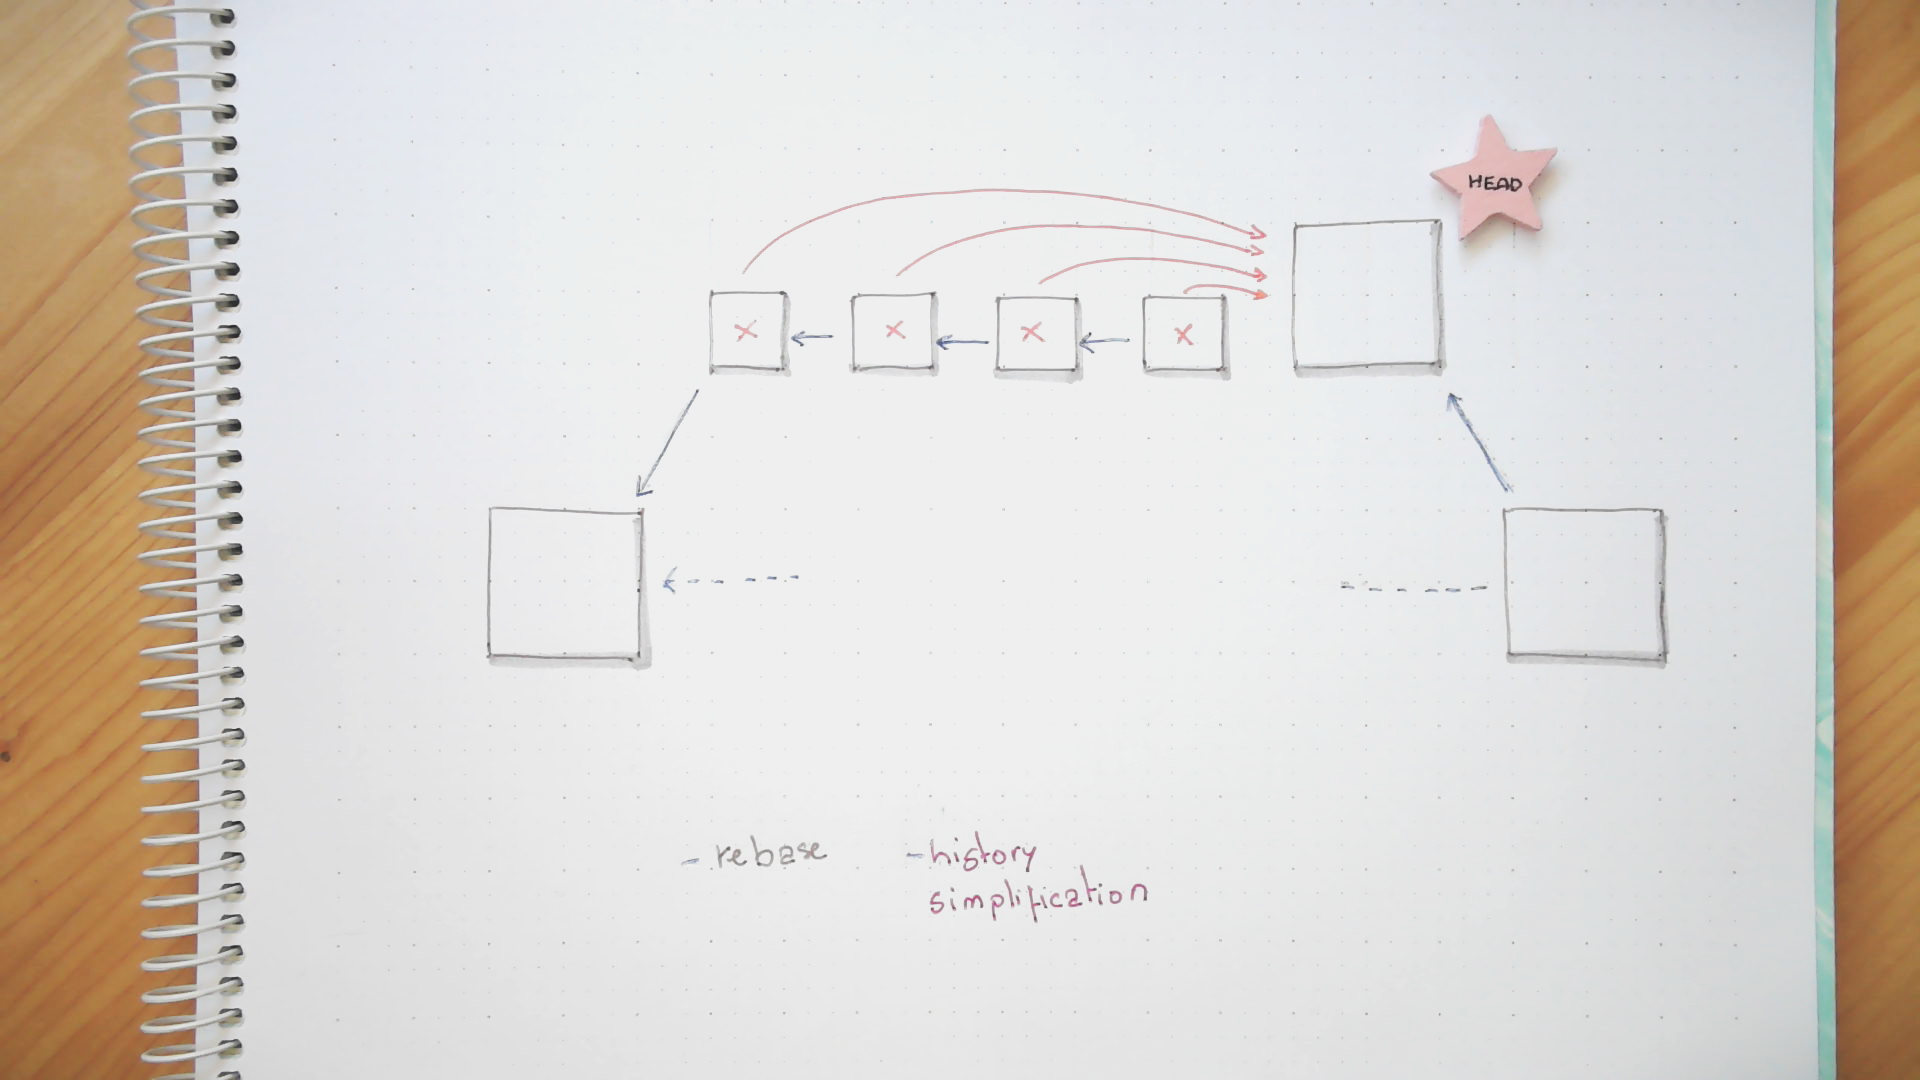 HEAD
x x x x
- rebase
- history
simplification